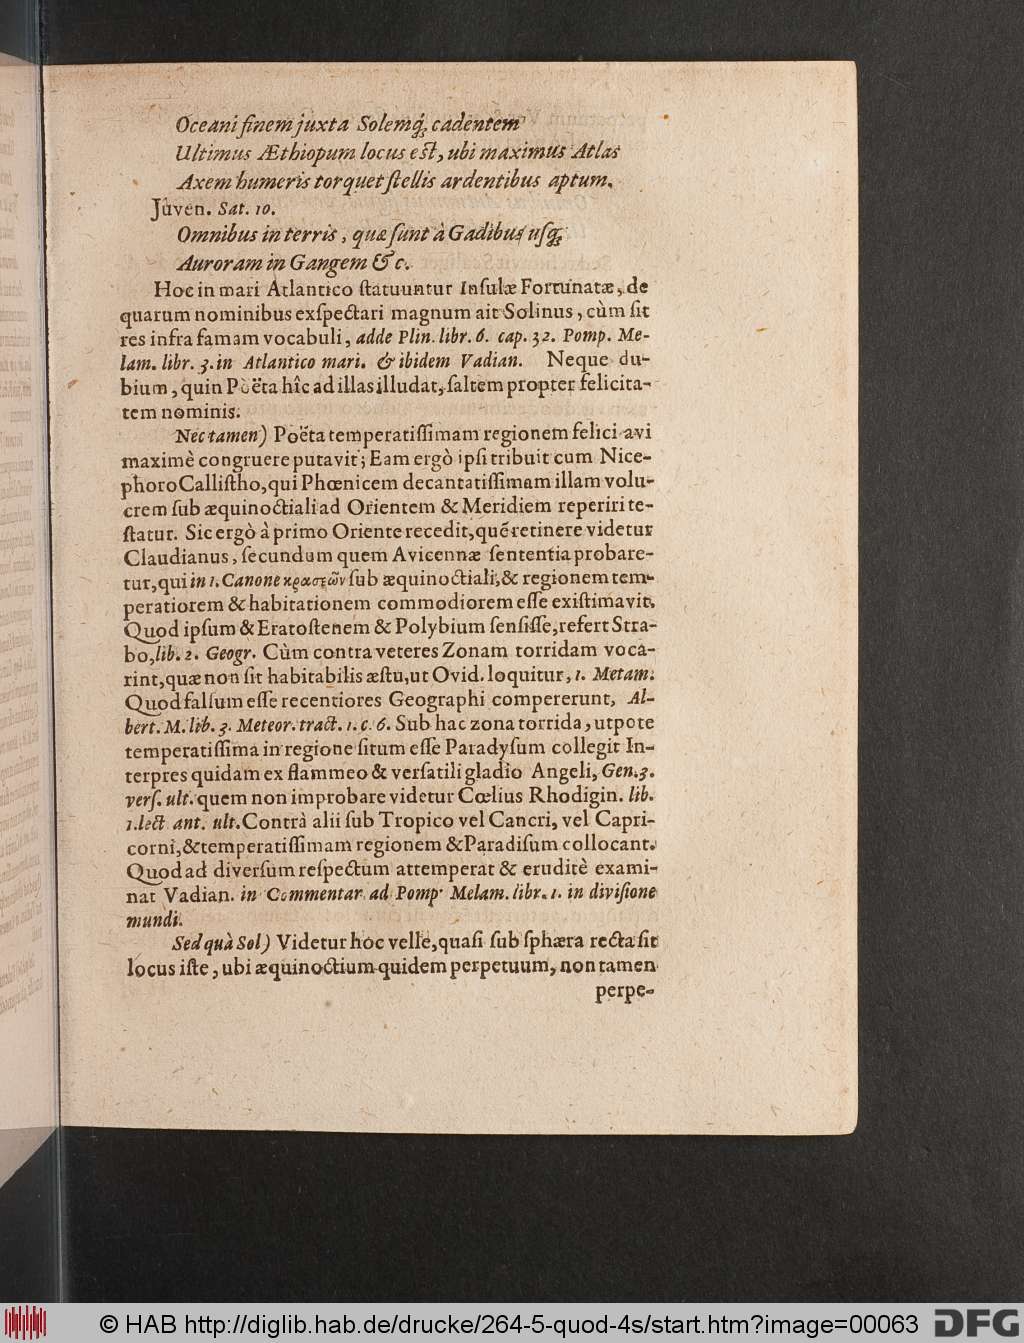 Oceani finem juxta Solemq́; cadentem
Ultimus Æthiopum locus est, ubi maximus Atlas
Axem humeris torquet ſtellis ardentibus aptum.
Juven. Sat. 10.
Omnibus in terris, quæ ſunt à Gadibus uſq́;
Auroram in Gangem & c.
Hoc in mari Atlantico ſtatuuntur Inſulæ Fortunatæ, de
quarum nominibus exſpectari magnum ait Solinus, cùm ſit
res infra famam vocabuli, adde Plin. libr. 6. cap. 32. Pomp. Me-
lam. libr. 3. in Atlantico mari. & ibidem Vadian. Neque du-
bium, quin Poëta hîc ad illas illudat, ſaltem propter felicita-
tem nominis.
Nec tamen) Poëta temperatiſſimam regionem felici avi
maximè congruere putavit; Eam ergò ipſi tribuit cum Nice-
phoro Calliſtho, qui Phœnicem decantatiſſimam illam volu-
crem ſub æquinoctiali ad Orientem & Meridiem reperiri te-
ſtatur. Sic ergò à primo Oriente recedit, quẽ retinere videtur
Claudianus, ſecundum quem Avicennæ ſententia probare-
tur, qui in 1. Canone κρασεῶν ſub æquinoctiali, & regionem tem-
peratiorem & habitationem commodiorem eſſe exiſtimavit.
Quod ipſum & Eratoſtenem & Polybium ſenſiſſe, refert Stra-
bo, lib. 2. Geogr. Cùm contra veteres Zonam torridam voca-
rint, quæ non ſit habitabilis æſtu, ut Ovid. loquitur, 1. Metam.
Quod falſum eſſe recentiores Geographi compererunt, Al-
bert. M. lib. 3. Meteor. tract. 1. c. 6. Sub hac zona torrida, utpote
temperatiſſima in regione ſitum eſſe Paradyſum collegit In-
terpres quidam ex flammeo & verſatili gladio Angeli, Gen. 3.
verſ. ult. quem non improbare videtur Cœlius Rhodigin. lib.
1. lect ant. ult. Contrà alii ſub Tropico vel Cancri, vel Capri-
corni, & temperatiſſimam regionem & Paradiſum collocant.
Quod ad diverſum reſpectum attemperat & eruditè exami-
nat Vadian. in Commentar. ad Pomp. Melam. libr. 1. in diviſione
mundi.
Sed quà Sol) Videtur hoc velle, quaſi ſub ſphæra recta ſit
locus iſte, ubi æquinoctium quidem perpetuum, non tamen
perpe-
© HAB http://diglib.hab.de/drucke/264-5-quod-4s/start.htm?image=00063
DFG